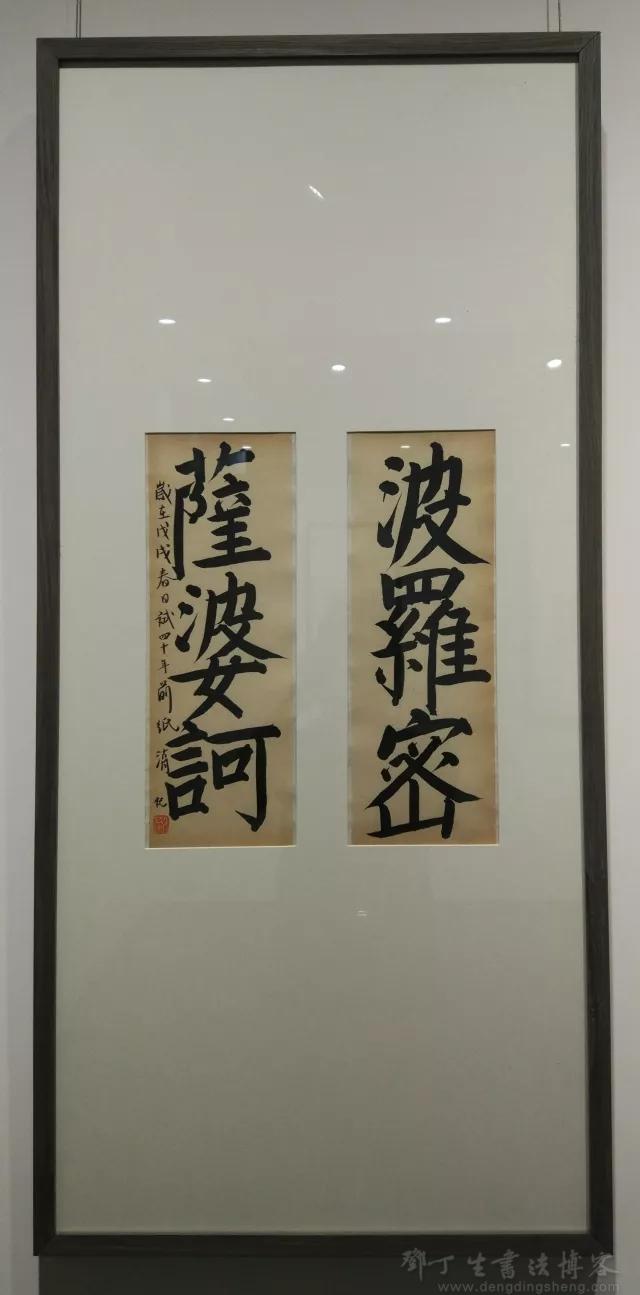 波羅密
薩婆訶
歲在戊戌春日試四十年前紙 清 記
鄧丁生書法博客
www.dengdingsheng.com